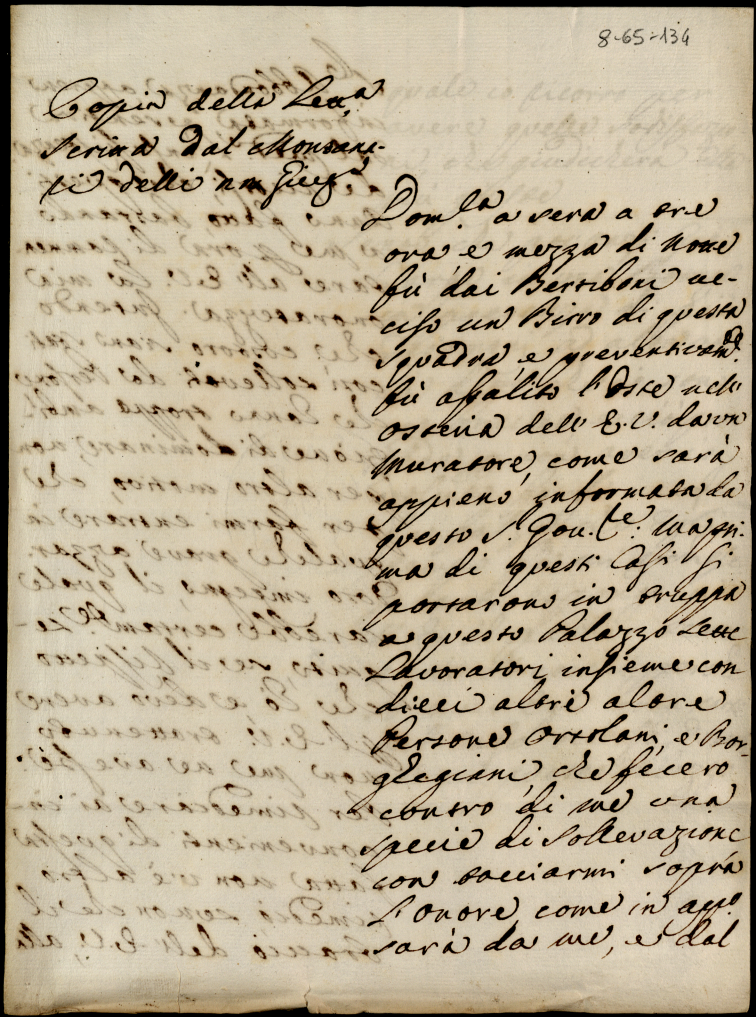 8-65-134
Copia della Lett.a
scritta dal Monsani-
ti delli
Dom.ca a sera a tre
ora e mezza di notte
fù dai Bertiboni uc-
ciso un Birro di questa
squadra, e preventivam.e
fù assalito l'Oste nell'
osteria dell' E.V. da un
muratore, come sarà
appieno informata da
questo S. Gov.re. Ma pri-
ma di questi casi si
portarono in truppa
a questo Palazzo sette
Lavoratori insieme con
dieci altri
Persone Ortolani, e Bor-
ghegiani che fecero
contro di me una
specie di sollevazione
con tacciarmi sopra
l'onore come in app.o
sarà da me, e dal